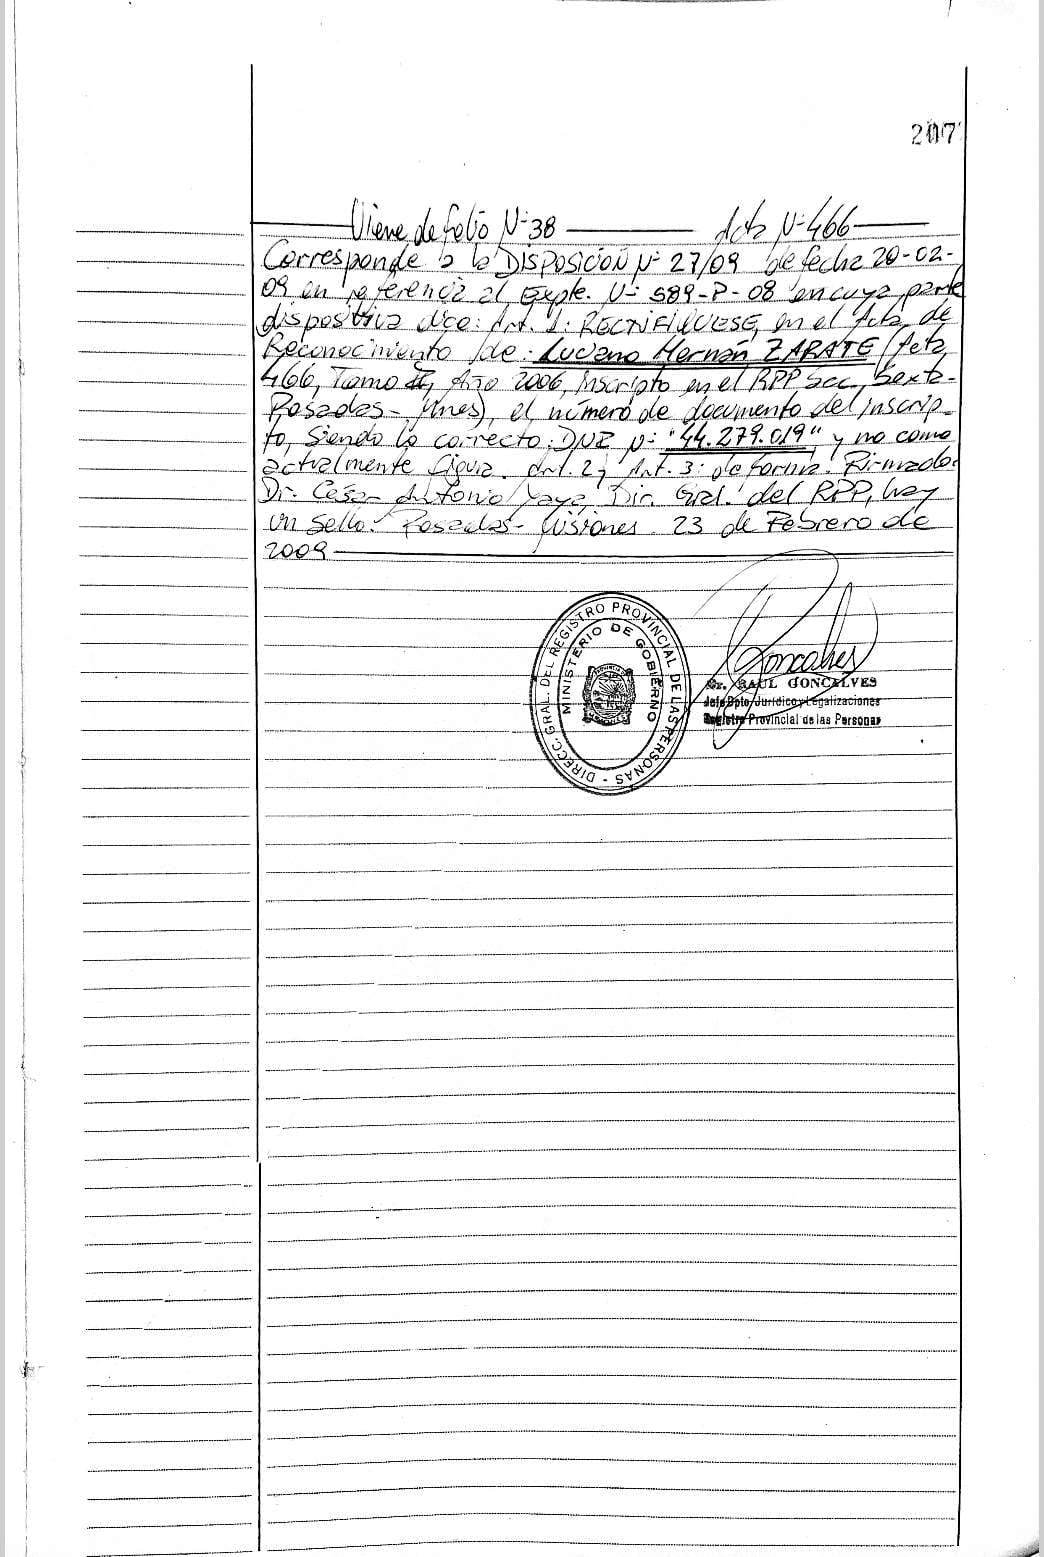 207
Viene de folio Nº 38 Acta Nº 466
Corresponde a la DISPOSICION Nº 27/09 de fecha 20-02-
09 en referencia al Expte. Nº 589-P-08 en cuya parte
dispositiva dice: Art. 1: RECTIFIQUESE, en el Acta de
Reconocimiento de: Luciano Hernán ZARATE (Acta
466, Tomo II, Año 2006, inscripto en el RPP Secc. Sexta-
Posadas- Mnes), el número de documento del inscrip-
to, siendo lo correcto: DNI Nº "44.279.019" y no como
actualmente figura. Art. 2 y Art. 3: de forma. Firmado:
Dr. César Antonio Yaya, Dir. Gral. del RPP, hay
un sello. Posadas- Misiones. 23 de Febrero de
2009
DIRECC. GRAL. DEL REGISTRO PROVINCIAL DE LAS PERSONAS -
MINISTERIO DE GOBIERNO
Goncalves
Sr. RAUL GONCALVES
Jefe Dpto Jurídico y Legalizaciones
Registro Provincial de las Personas